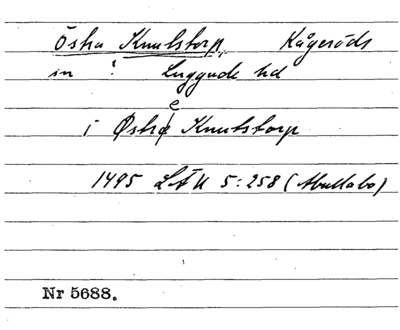 Östra Knutstorp, Kågeröds
in : Luggude hd
i Østre Knutstorp
1495 LÅU 5:258 (Abullabo)
Nr 5688.